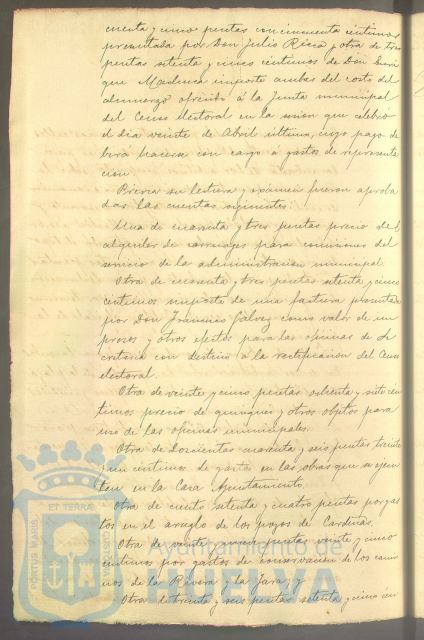 cuenta y cinco pesetas con cincuenta céntimos
presentada por Don Julio Rica y otra de tres
pesetas setenta y cinco céntimos de Don
que importe ambas del costo del
almuerzo ofrecido á la Junta municipal
del Censo electoral en la sesion que celebró
el dia veinte de Abril último, cuyo pago de
berá hacerse con cargo á gastos de representa
cion.
Prévia su lectura y exámen fueron aproba
das las cuentas siguientes:
Una de cuarenta y tres pesetas precio del
alquiler de carruages para comisiones del
servicio de la administracion municipal.
Otra de cuarenta y tres pesetas setenta y cinco
centimos importe de una factura presentada
por Don Francisco Galvez como valor de im
presos y otros efectos para las oficinas de Se
cretaria con destino á la rectificacion del Censo
electoral.
Otra de veinte y cinco pesetas ochenta y siete cen
timos precio de quinqués y otros objetos para
uso de las oficinas municipales.
Otra de Doscientas cuarenta y seis pesetas treinta
y un céntimos de gastos en las obras que se ejecu
tan en la Casa Ayuntamiento.
Otra de ciento setenta y cuatro pesetas por gas
tos en el arreglo de los pozos de Cardeñas.
Otra de veinte pesetas veinte y cinco
centimos por gastos de conservacion de los cami
nos de la Rivera y la Jara; y
Otra de treinta y seis pesetas setenta y cinco cén
PORTUS MARIS
ET TERRÆ
CUSTODIA
Ayuntamiento de
HUELVA